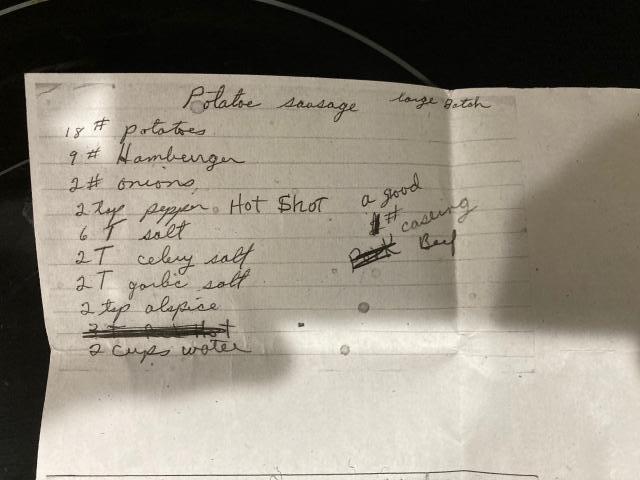 Potatoe sausage large Batch
18 # potatoes
9 # Hamburger
2 # onions
2 tsp pepper Hot Shot
6 T salt
2 T celery salt
2 T garlic salt
2 tsp alspice
2 cups water
a good
1 # caseing
Pork Beef